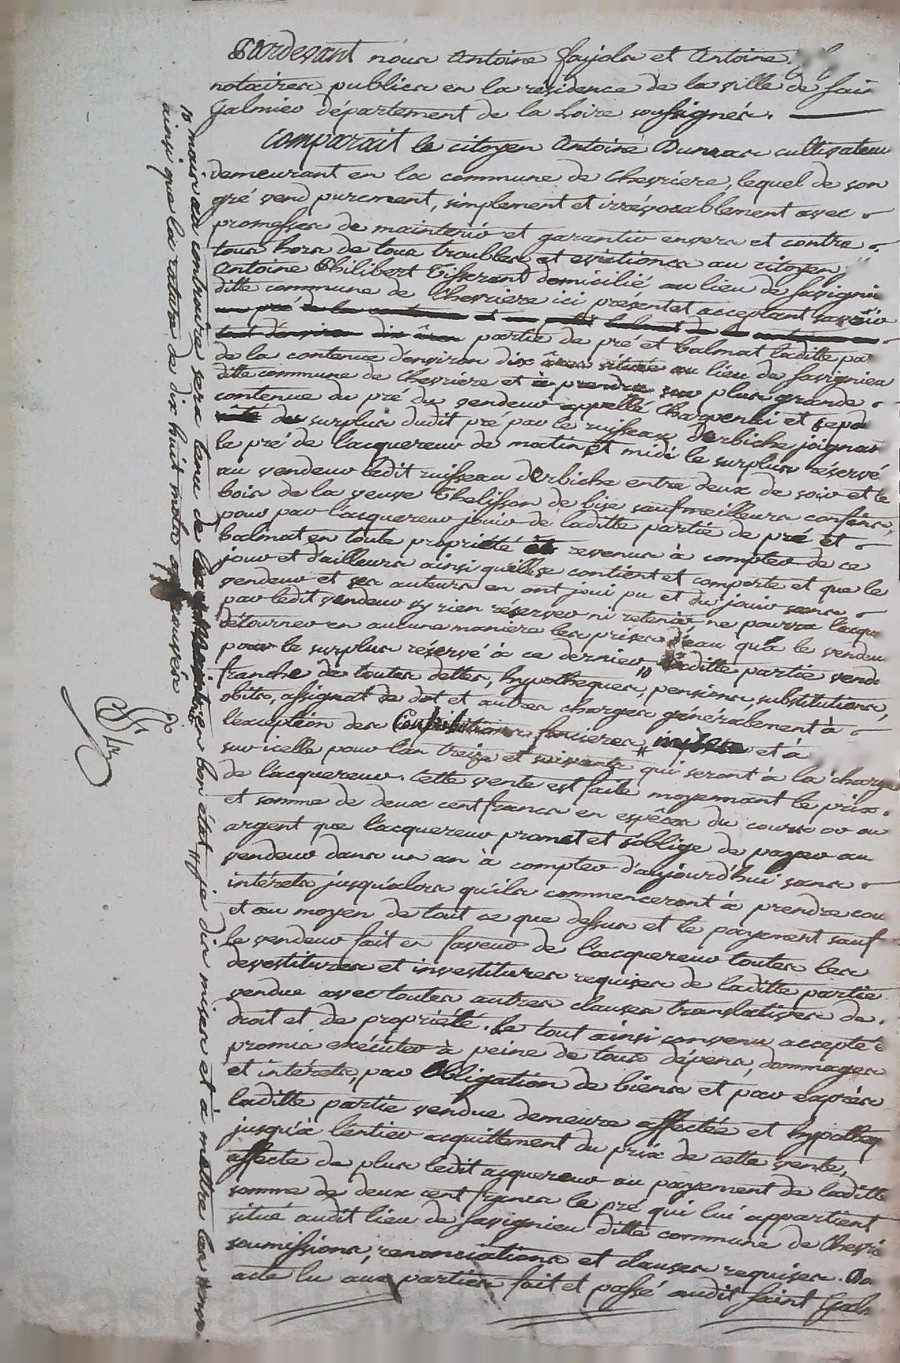 Pardevant nous Antoine fojols et Antoine
notaires publics en la résidence de la ville de sain
galmier département de la Loire soussignés.
Comparait le citoyen Antoine cultivateur
demeurant en la commune de chevriere, lequel de son
gré vend purement, simplement et irrévocablement avec
promesses de maintenir et garantir envers et contre
tous hors de tous troubles et evictions au citoyen
Antoine Philibert Tisserand domicilié au lieu de savignieu
ditte commune de Chevriere ici present et acceptant savoir
un pré de la contenue et un petit balmat de la contenue
tout d'environ dix ares partie de pré et balmat laditte par
de la contenue d'environ dix ares située au lieu de savignieu
ditte commune de chevriere et à prendre sur plus grande
contenue du pré du vendeur appellé et sepa
du surplus dudit pré par le ruisseau Derbiche, joignant
le pré de l'acquereur de matin et midi le surplus réservé
au vendeur ledit ruisseau Derbiche entre deux de soir et le
bois de la veuve Thelisson de bise sauf meilleurs confins,
pour par l'acquereur jouir de laditte partie de pré et
balmat en toute propriété et revenus à compter de ce
jour et d'ailleurs ainsi qu'elle se contient et comporte et que le
vendeur et ses auteurs en ont joui pu et du jouir sans
par ledit vendeur s'y rien réserver ni retenir ne pourra l'acque
détourner en aucune maniere les prises d'eau qu'a le vendeur
pour le surplus réservé à ce dernier 10 laditte partie vend
franche de toutes dettes, hypotheques, pensions, substitutions,
obits, assignat de dot et autres charges généralement à
l'exception des Contributions foncieres, et à
sur icelle pour l'an treize et suivants qui seront à la charge
de l'acquereur. cette vente est faite moyennant le prix
et somme de deux cent francs en espèces du cours or ou
argent que l'acquereur promet et s'oblige de payer au
vendeur dans un an à compter d'aujourd'hui sans
intérets jusqu'alors qu'ils commenceront à prendre cou
et au moyen de tout ce que dessus et le payement sauf
le vendeur fait en faveur de l'acquereur toutes les
devestitures et investitures requises de laditte partie
vendue avec toutes autres clauses translatives de
droit et de propriété. Le tout ainsi convenu accepté
promis exécuter à peine de tous dépens, dommages
et intérets, par Obligation de biens et par exprès
laditte partie vendue demeure affectée et hypotheq
jusqu'à l'entier acquittement du prix de cette vente,
affecte de plus ledit acquereur au payement de laditte
somme de deux cent francs le pré qui lui appartient
situé audit lieu de savignieu ditte commune de Chevri
soumissions, renonciations et clauses requises. Do
acte lu aux parties fait et passé audit saint Galm
10 mais au contraire sera tenu de les en bon état, je dis mises et à mettre les
ainsi que la rature de dix huit mots